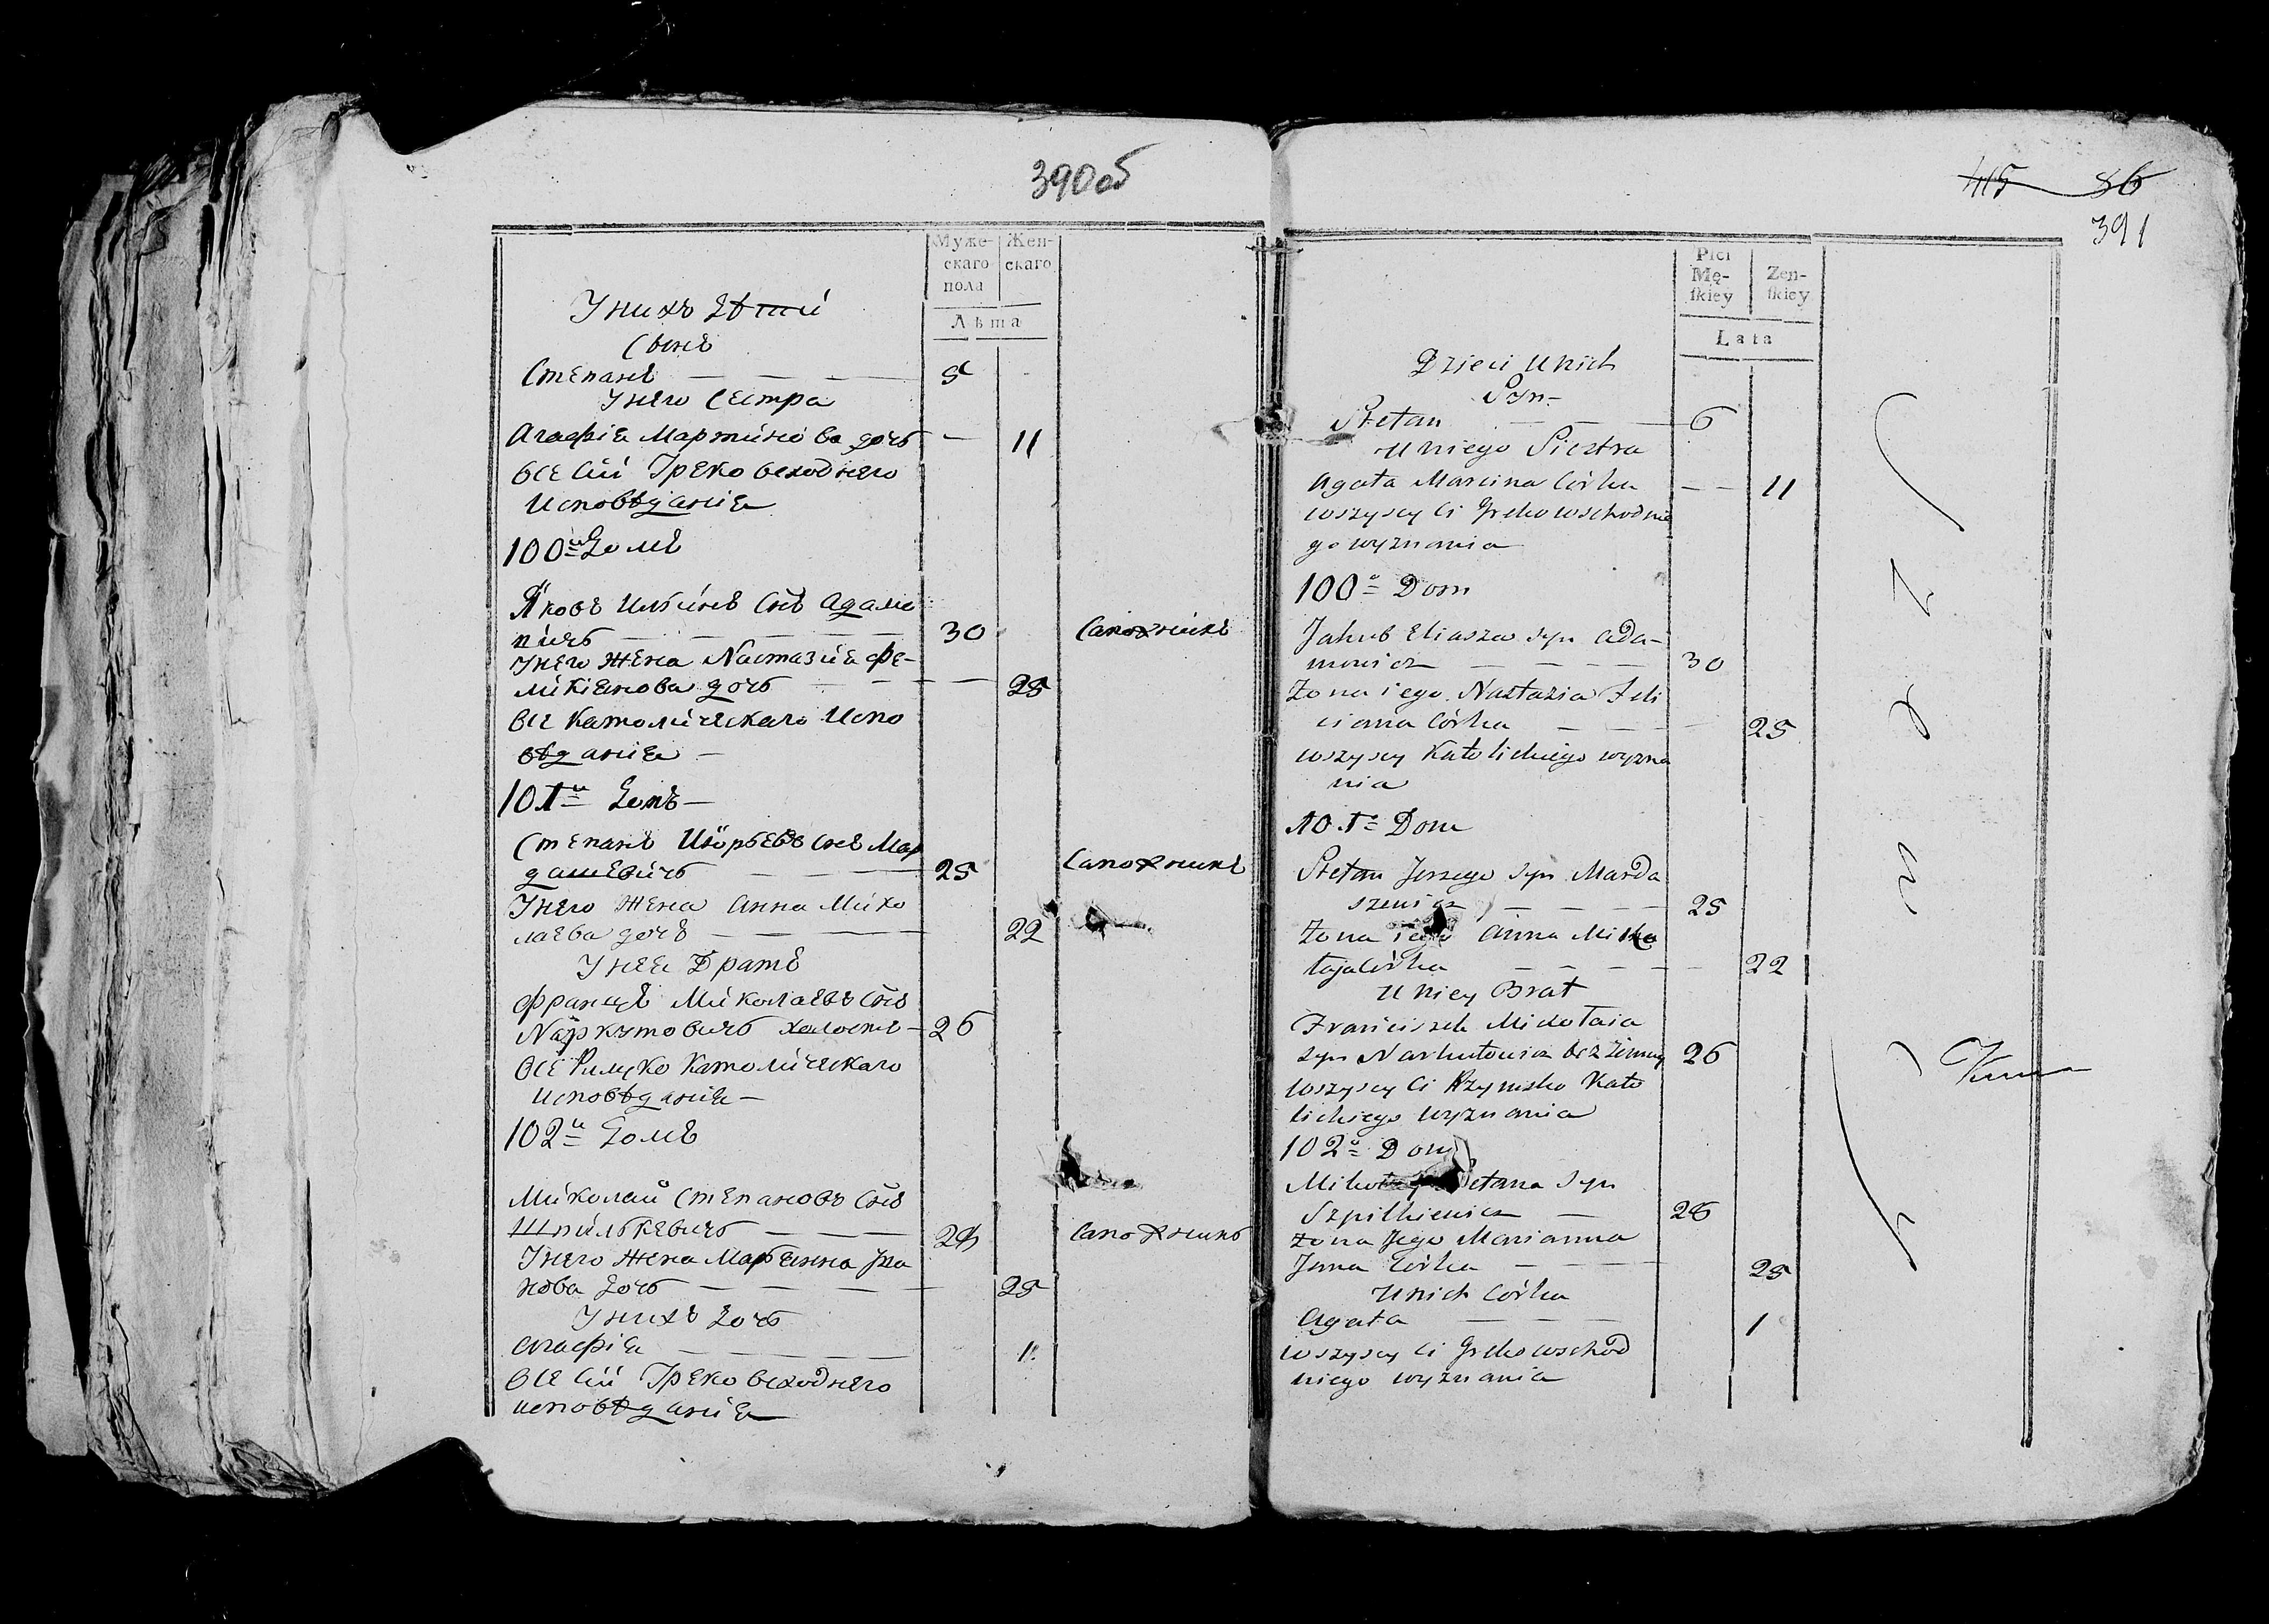 390об
Муже-
скаго
пола
Жен-
скаго
Лѣта
У нихъ Дѣти
Сынъ
Степанъ — — — 5
У него Сестра
Агафія Мартинова дочь — 11
Все Сіи Греко Восходнего
Исповѣданія
100й Домъ
Яковъ Ильинъ Снъ Адамо
вичъ — — — 30 Сапожникъ
У него Жена Настазія Фе-
ликіанова дочь — — 25
Все Католическаго Испо
вѣданія —
101й Домъ —
Степанъ Июрьевъ Снъ Мар
дашевичъ — — 25 Сапожникъ
У него Жена Анна Мико
лаева дочь — — — 22
У нея Братъ
Францъ Миколаевъ Снъ
Наркутовичъ холостъ — 26
Все Римско Католическаго
Исповѣданія —
102й Домъ
Миколай Степановъ Снъ
Шпилькевичъ — — Сапожникъ
У него Жена Марьянна
дочь — — — 25
У нихъ дочь
Агафія — — — 1
Все Сіи Греко Восходнего
исповѣданія
415 86
391
Płci
Mę-
skiey
Zeń-
skiey
Lata
Dzieci u nich
Syn —
Stefan — — — 6
u niego Siostra
Agata Marcina Córka — — 11
wszyscy Ci Greko wschodnie
go wyznania
100y Dom
Jakub Eliasza syn Ada-
mowicz — — — 30
Żona iego Nastazia Feli
ciana Córka — — — 25
wszyscy Katolickiego wyzna
nia
101y Dom
Stefan Jerzego Syn Marda
szewicz — — — 25
Żona iego Anna Miko
łaja Córka — — — 22
u niey Brat
Franciszek Mikołaia
syn Narkutowicz bezżenny 26
wszyscy Ci Rzymsko Kato
lickiego wyznania
102y Dom
Mikołay Stefana Syn
Szpilkiewicz — 26
Żona Jego Marianna
Córka — — — 25
u nich Córka
Agata — — — 1
wszyscy Ci Greko wschod
niego wyznania